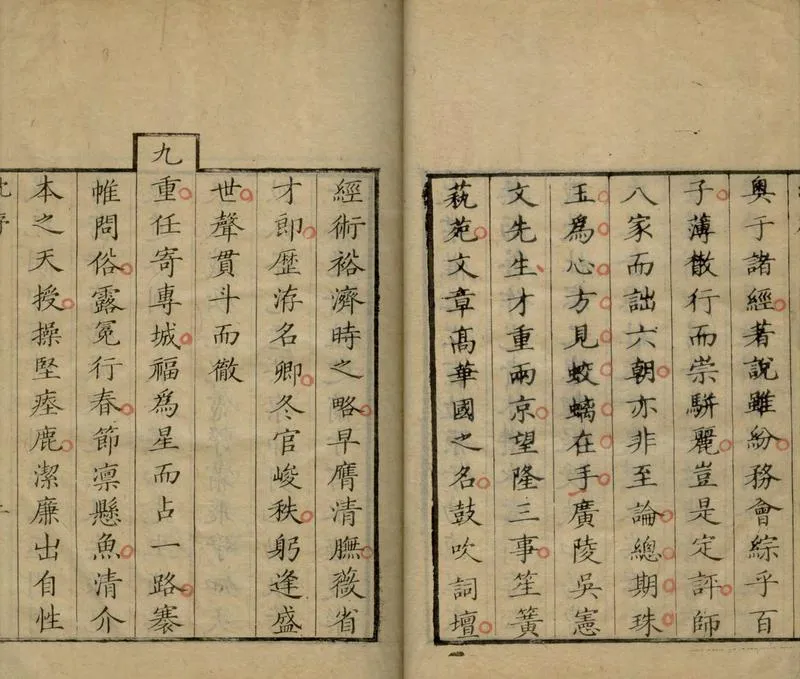 奧于諸經著說雖紛務會綜乎百
子薄散行而崇駢麗豈是定評師
八家而詘六朝亦非至論總期珠
玉爲心方見蛟螭在手廣陵吳憲
文先生才重兩京望隆三事笙簧
萟苑文章髙華國之名鼓吹詞壇
經術裕濟時之略早膺清膴薇省
才郎歷洊名卿冬官峻秩躬逢盛
世聲貫斗而徹
九重任寄專城福爲星而占一路褰
帷問俗露冕行春節凛懸魚清介
本之天授操堅瘞鹿潔廉出自性